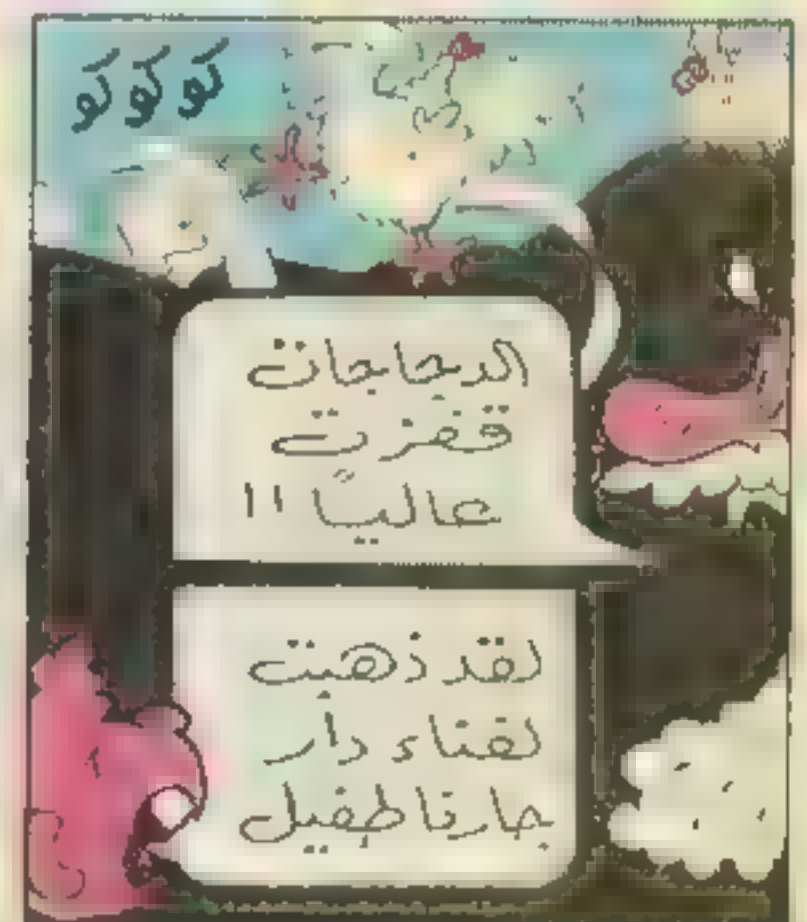 كو كو كو
الدجاجات
قفزت
عاليًا !!
لقد ذهبت
لفناء دار
جارنا طفيل